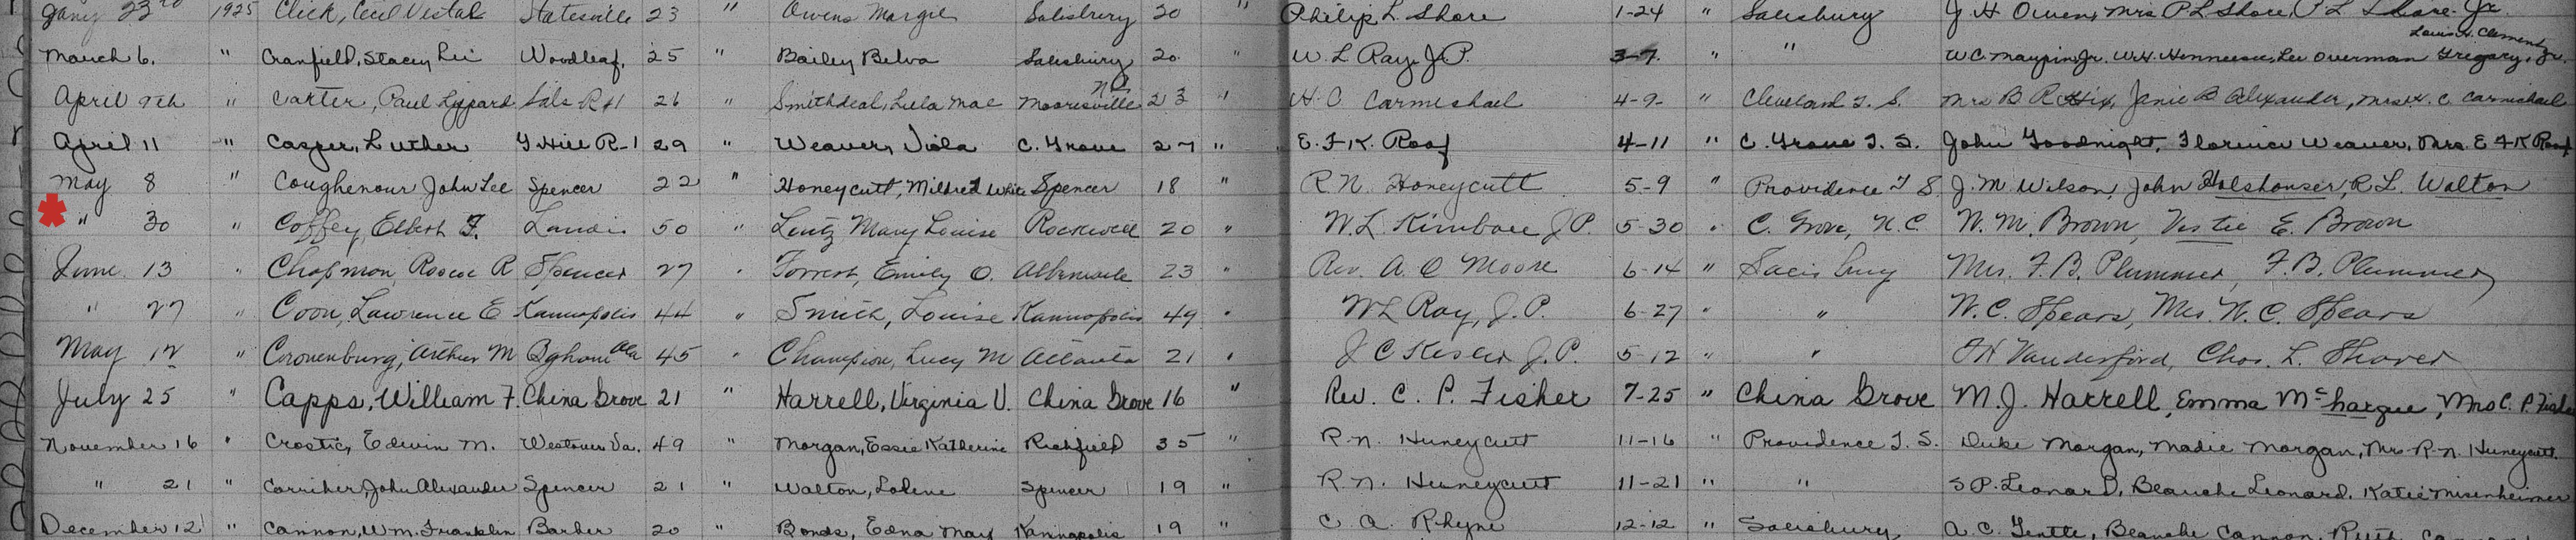 Jany 23rd 1925 Click, Cecil Vestal Statesville 23 " Owens Margie Salisbury 20 " Philip L. Shore 1-24 " Salisbury J H Owens, Mrs P L Shore, P L Shore Jr.
Louis H. Clement
March 6. " Cranfield, Stacey Lee Woodleaf. 25 " Bailey Belva Salisbury 20 " W L Ray J.P. 3-7 " " W C Maupin Jr. W H Hennessee, Lee Overman Gregory, Jr.
April 9th " Carter, Paul Lippard Sals R#1 26 " Smithdeal, Lula Mae Mooresville N C 23 " H. C Carmichael 4-9- " Cleveland T. S. Mrs B R Hix, Janie B Alexander, Mrs H. C Carmichael
April 11 " Casper, Luther G Hill R-1 29 " Weaver, Viola C. Grove 27 " E. F. K. Roof 4-11 " C. Grove T. S. John Goodnight, Florence Weaver, Mrs. E F K Roof
May 8 " Coughenour John Lee Spencer 22 " Honeycutt, Mildred White Spencer 18 " R N. Honeycutt 5-9 " Providence T S J. M. Wilson, John Holshouser, R L. Walton
" 30 " Coffey, Elbert F. Landis 50 " Lentz Mary Louise Rockwell 20 " W. L. Kimball J P. 5-30 " C. Grove, N. C W. M. Brown, Vestie E. Brown
June 13 " Chapman, Roscoe R Spencer 27 " Forrest, Emily O. Albemarle 23 " Rev. A. O Moore 6-14 " Salisbury Mrs. F. B. Plummer, F. B. Plummer
" 27 " Coon, Lawrence E Kannapolis 44 " Smith, Louise Kannapolis 49 " W L Ray, J. P. 6-27 " " W. C. Spears, Mrs. W. C. Spears
May 12 " Cronenburg, Arthur M Bgham Ala 45 " Champion, Lucy M Atlanta 21 " J C Kesler J. P. 5-12 " " Vanderford, Chas. L. Shaver
July 25 " Capps, William F. China Grove 21 " Harrell, Virginia V. China Grove 16 " Rev. C. P. Fisher 7-25 " China Grove M. J. Harrell, Emma McHargue, Mrs C. P. Fisher
November 16 " Crostic, Edwin M. Westover Va. 49 " Morgan, Essie Katherine Richfield 35 " R. N. Huneycutt 11-16 " Providence T. S. Duke Morgan, Madie Morgan, Mrs R. N. Huneycutt
" 21 " Corriher, John Alexander Spencer 21 " Walton, Lolene Spencer 19 " R. N. Huneycutt 11-21 " " S P. Leonard, Blanche Leonard, Katie Misenheimer
December 12 " Cannon, Wm. Franklin Barber 20 " Bonds, Edna May Kannapolis 19 " C A Rhyne 12-12 " Salisbury A. C. Blanche Cannon, Ruth Cannon